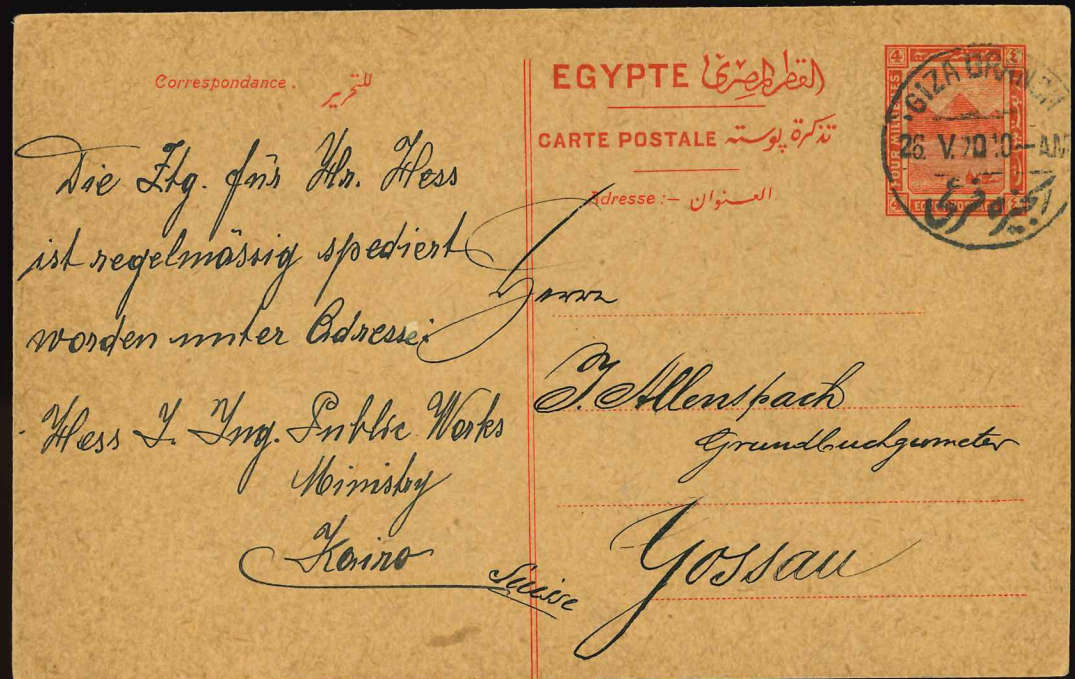 Correspondance. للتحرير
Die Ztg. für Hr. Hess
ist regelmässig spediert
worden unter Adresse:
Hess J. Ing. Public Works
Ministry
Kairo
EGYPTE القطر المصرى
CARTE POSTALE تذكرة پوستہ
Adresse:— العنوان
Herrn
J. Allenspach
Grundbuchgeometer
Gossau
Suisse
4 ٤
FOUR MILLIEMES
4 EGYPT POSTAGE ٤
GIZA BRANCH
26 V. 20 10—AM